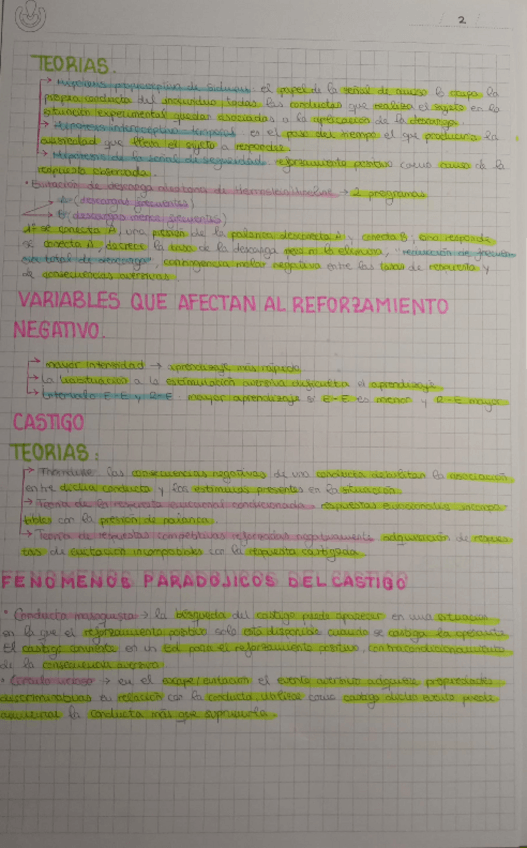 2
TEORIAS.
→ Hipótesis propioceptiva de Sidman: el papel de la señal de aviso lo ocupa la
propia conducta del individuo, todas las conductas que realiza el sujeto en la
situación experimental quedan asociadas a la aplicación de la descarga
→ Hipótesis interoceptiva temporal: es el paso del tiempo el que produciría la
ansiedad que lleva al sujeto a responder.
→ Hipótesis de la señal de seguridad: reforzamiento positivo como causa de la
respuesta observada.
• Evitación de descarga aleatoria de Herrnstein → 2 programas
A (descargas frecuentes)
B (descargas menos frecuentes)
1º se conecta A, una presión de la palanca desconecta A y conecta B, sino responde
se conecta A, decrece la tasa de la descarga pero no la elimina, "reducción de frecuen
cia total de descargas", contingencia molar negativa entre las tasas de respuesta y
de consecuencias aversivas.
VARIABLES QUE AFECTAN AL REFORZAMIENTO
NEGATIVO.
→ mayor intensidad → aprendizaje más rápido
→ La habituación a la estimulación aversiva dificulta el aprendizaje
→ Intervalo E-E y R-E: mayor aprendizaje si E-E es menor y R-E mayor
CASTIGO
TEORIAS:
→ Thorndike: las consecuencias negativas de una conducta debilitan la asociación
entre dicha conducta y los estímulos presentes en la situación.
→ Teoría de la respuesta emocional condicionada: respuestas emocionales incompa-
tibles con la presión de palanca.
→ Teoría de respuestas competitivas reforzadas negativamente: adquisición de respues-
tas de evitación incompatibles con la respuesta castigada.
FENÓMENOS PARADÓJICOS DEL CASTIGO
• Conducta masoquista → la búsqueda del castigo puede aparecer en una situación
en la que el reforzamiento positivo solo está disponible cuando se castiga la operante.
El castigo convierte en un Ed para el reforzamiento positivo, contracondicionamiento
de la consecuencia aversiva.
• Círculo vicioso → en el escape/evitación el evento aversivo adquiere propiedades
discriminativas en relación con la conducta, utilizar como castigo dicho evento puede
aumentar la conducta más que suprimirla.